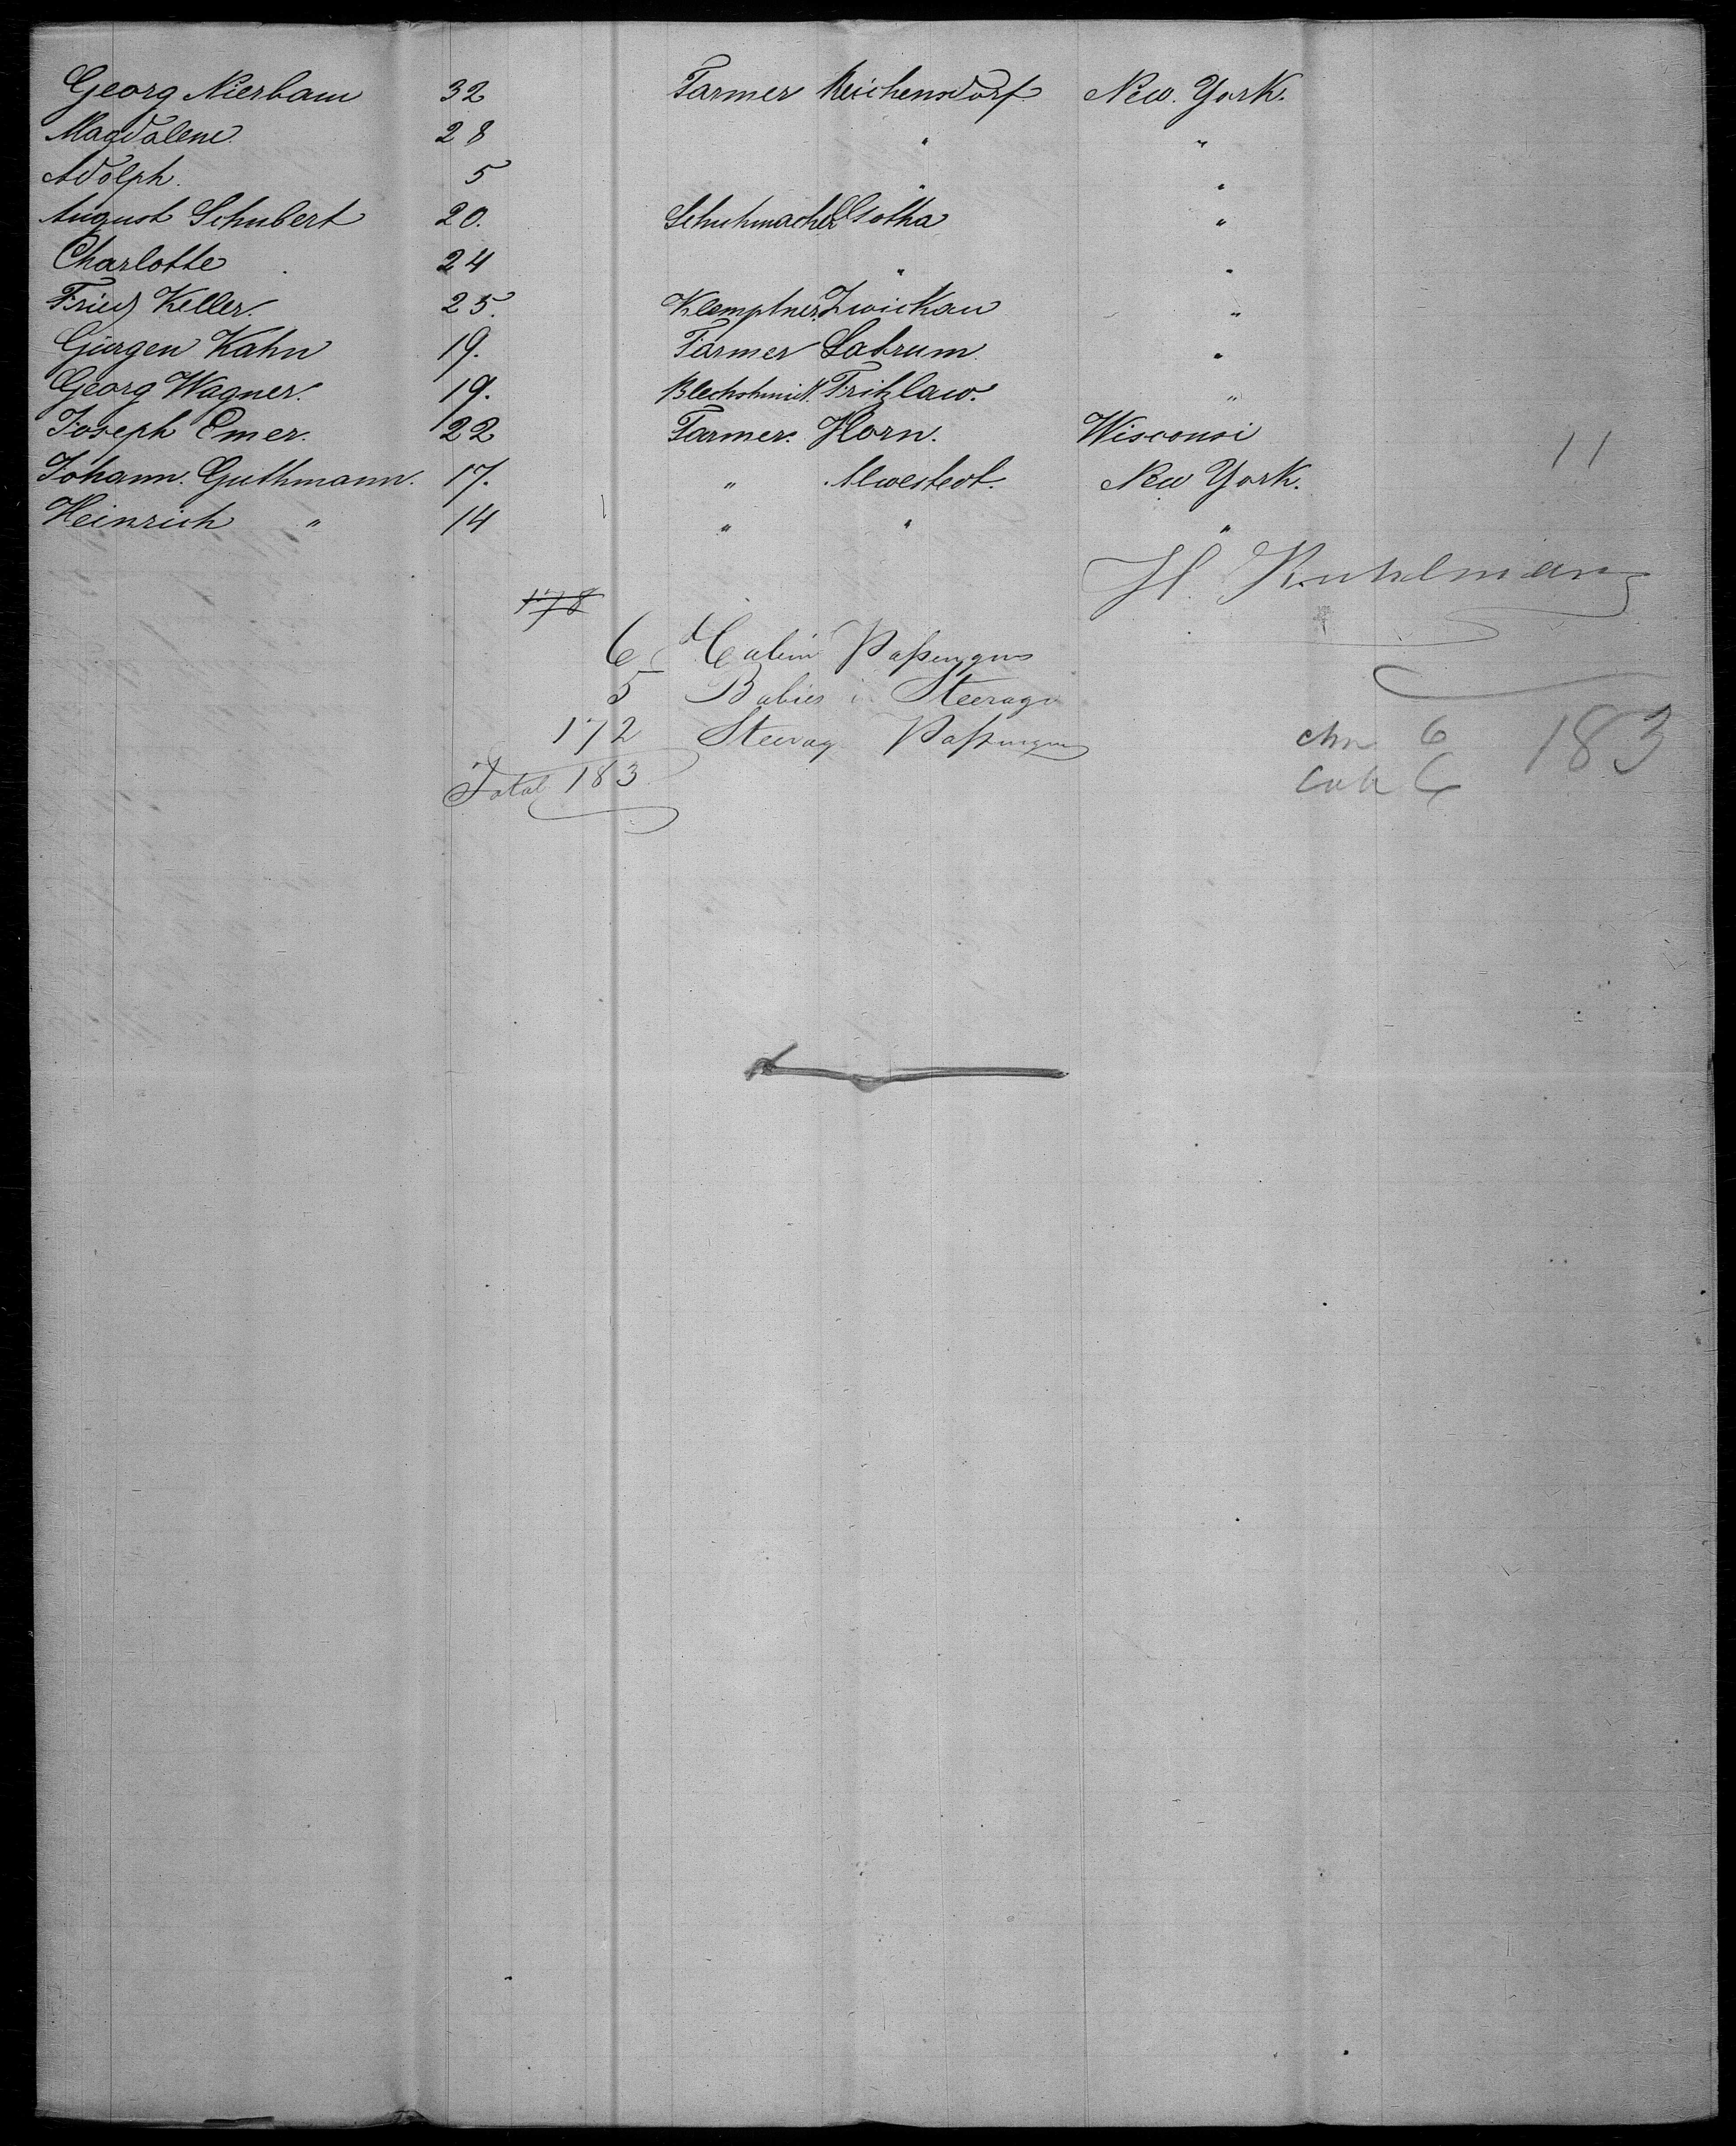 Georg Nierbaum 32 Farmer Reichensdorf New York.
Magdalene 28 " "
Adolph. 5 " "
August Schubert 20. Schuhmacher Gotha "
Charlotte 24 " "
Fried Keller. 25. Klemptner. Zwickau "
Gürgen Kahn 19. Farmer Labrum "
Georg Wagner. 19. Blechschmidt. Fritzlaw. "
Joseph Emer. 22 Farmer. Horn. Wisconsi
11
Johann. Guthmann. 17. " Alwestedt. New York.
Heinrich " 14 " " "
H. Kuhlmann
178
6 Cabin Paßengers
5 Babies i Steerage
172 Steerag Paßengers
Total 183
chn 6 183
Cab 6